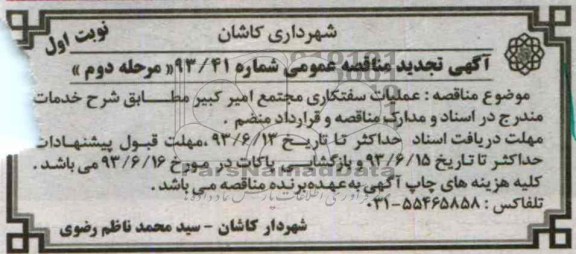 شهرداری کاشان
نوبت اول
آگهی تجدید مناقصه عمومی شماره ۹۳/۴۱ « مرحله دوم »
موضوع مناقصه : عملیات سفتکاری مجتمع امیر کبیر مطابق شرح خدمات
مندرج در اسناد و مدارک مناقصه و قرارداد منضم .
مهلت دریافت اسناد حداکثر تا تاریخ ۹۳/۶/۱۳ ،مهلت قبول پیشنهادات
حداکثر تا تاریخ ۹۳/۶/۱۵ و بازگشایی پاکات در مورخ ۹۳/۶/۱۶ می باشد .
کلیه هزینه های چاپ آگهی به عهده برنده مناقصه می باشد .
ParsNamadData
تلفاکس : ۵۵۴۶۵۸۵۸-۰۳۱
شهردار کاشان - سید محمد ناظم رضوی